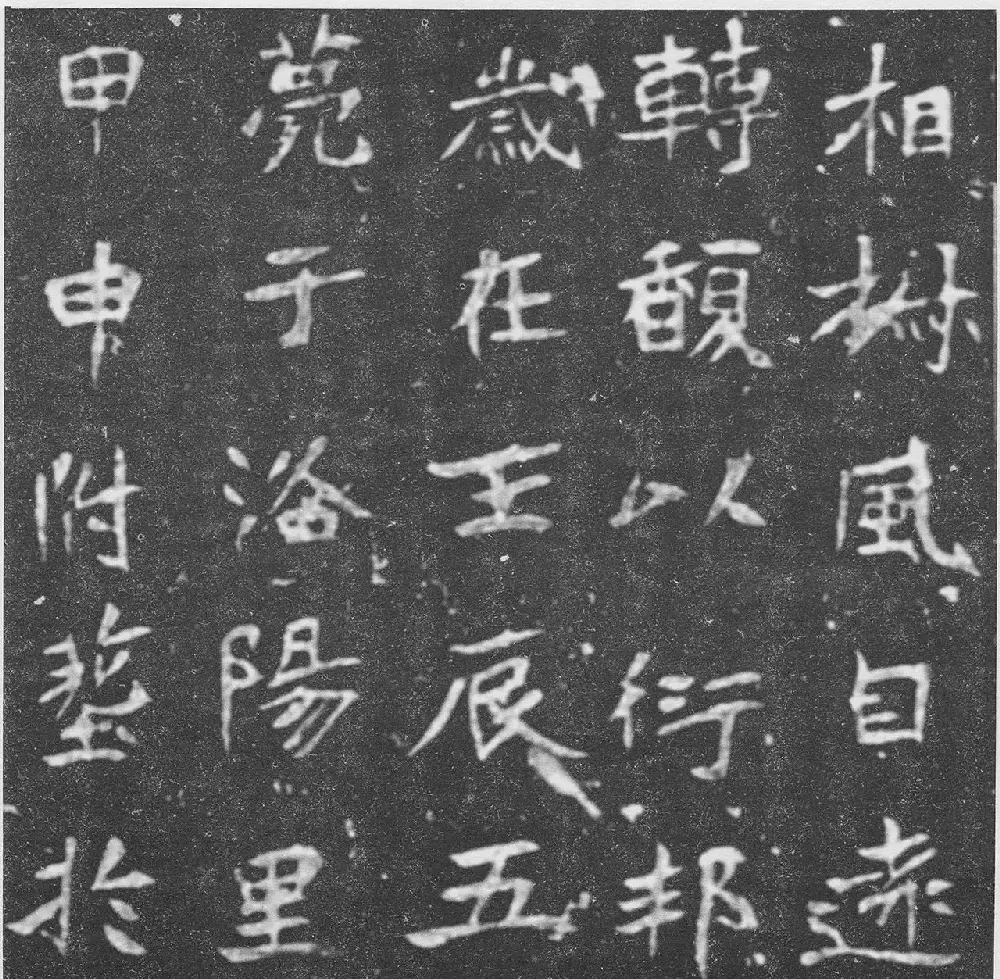 相樹風自
轉馥以衍邦
歲在壬辰五
薨于洛陽里
甲申附塟於